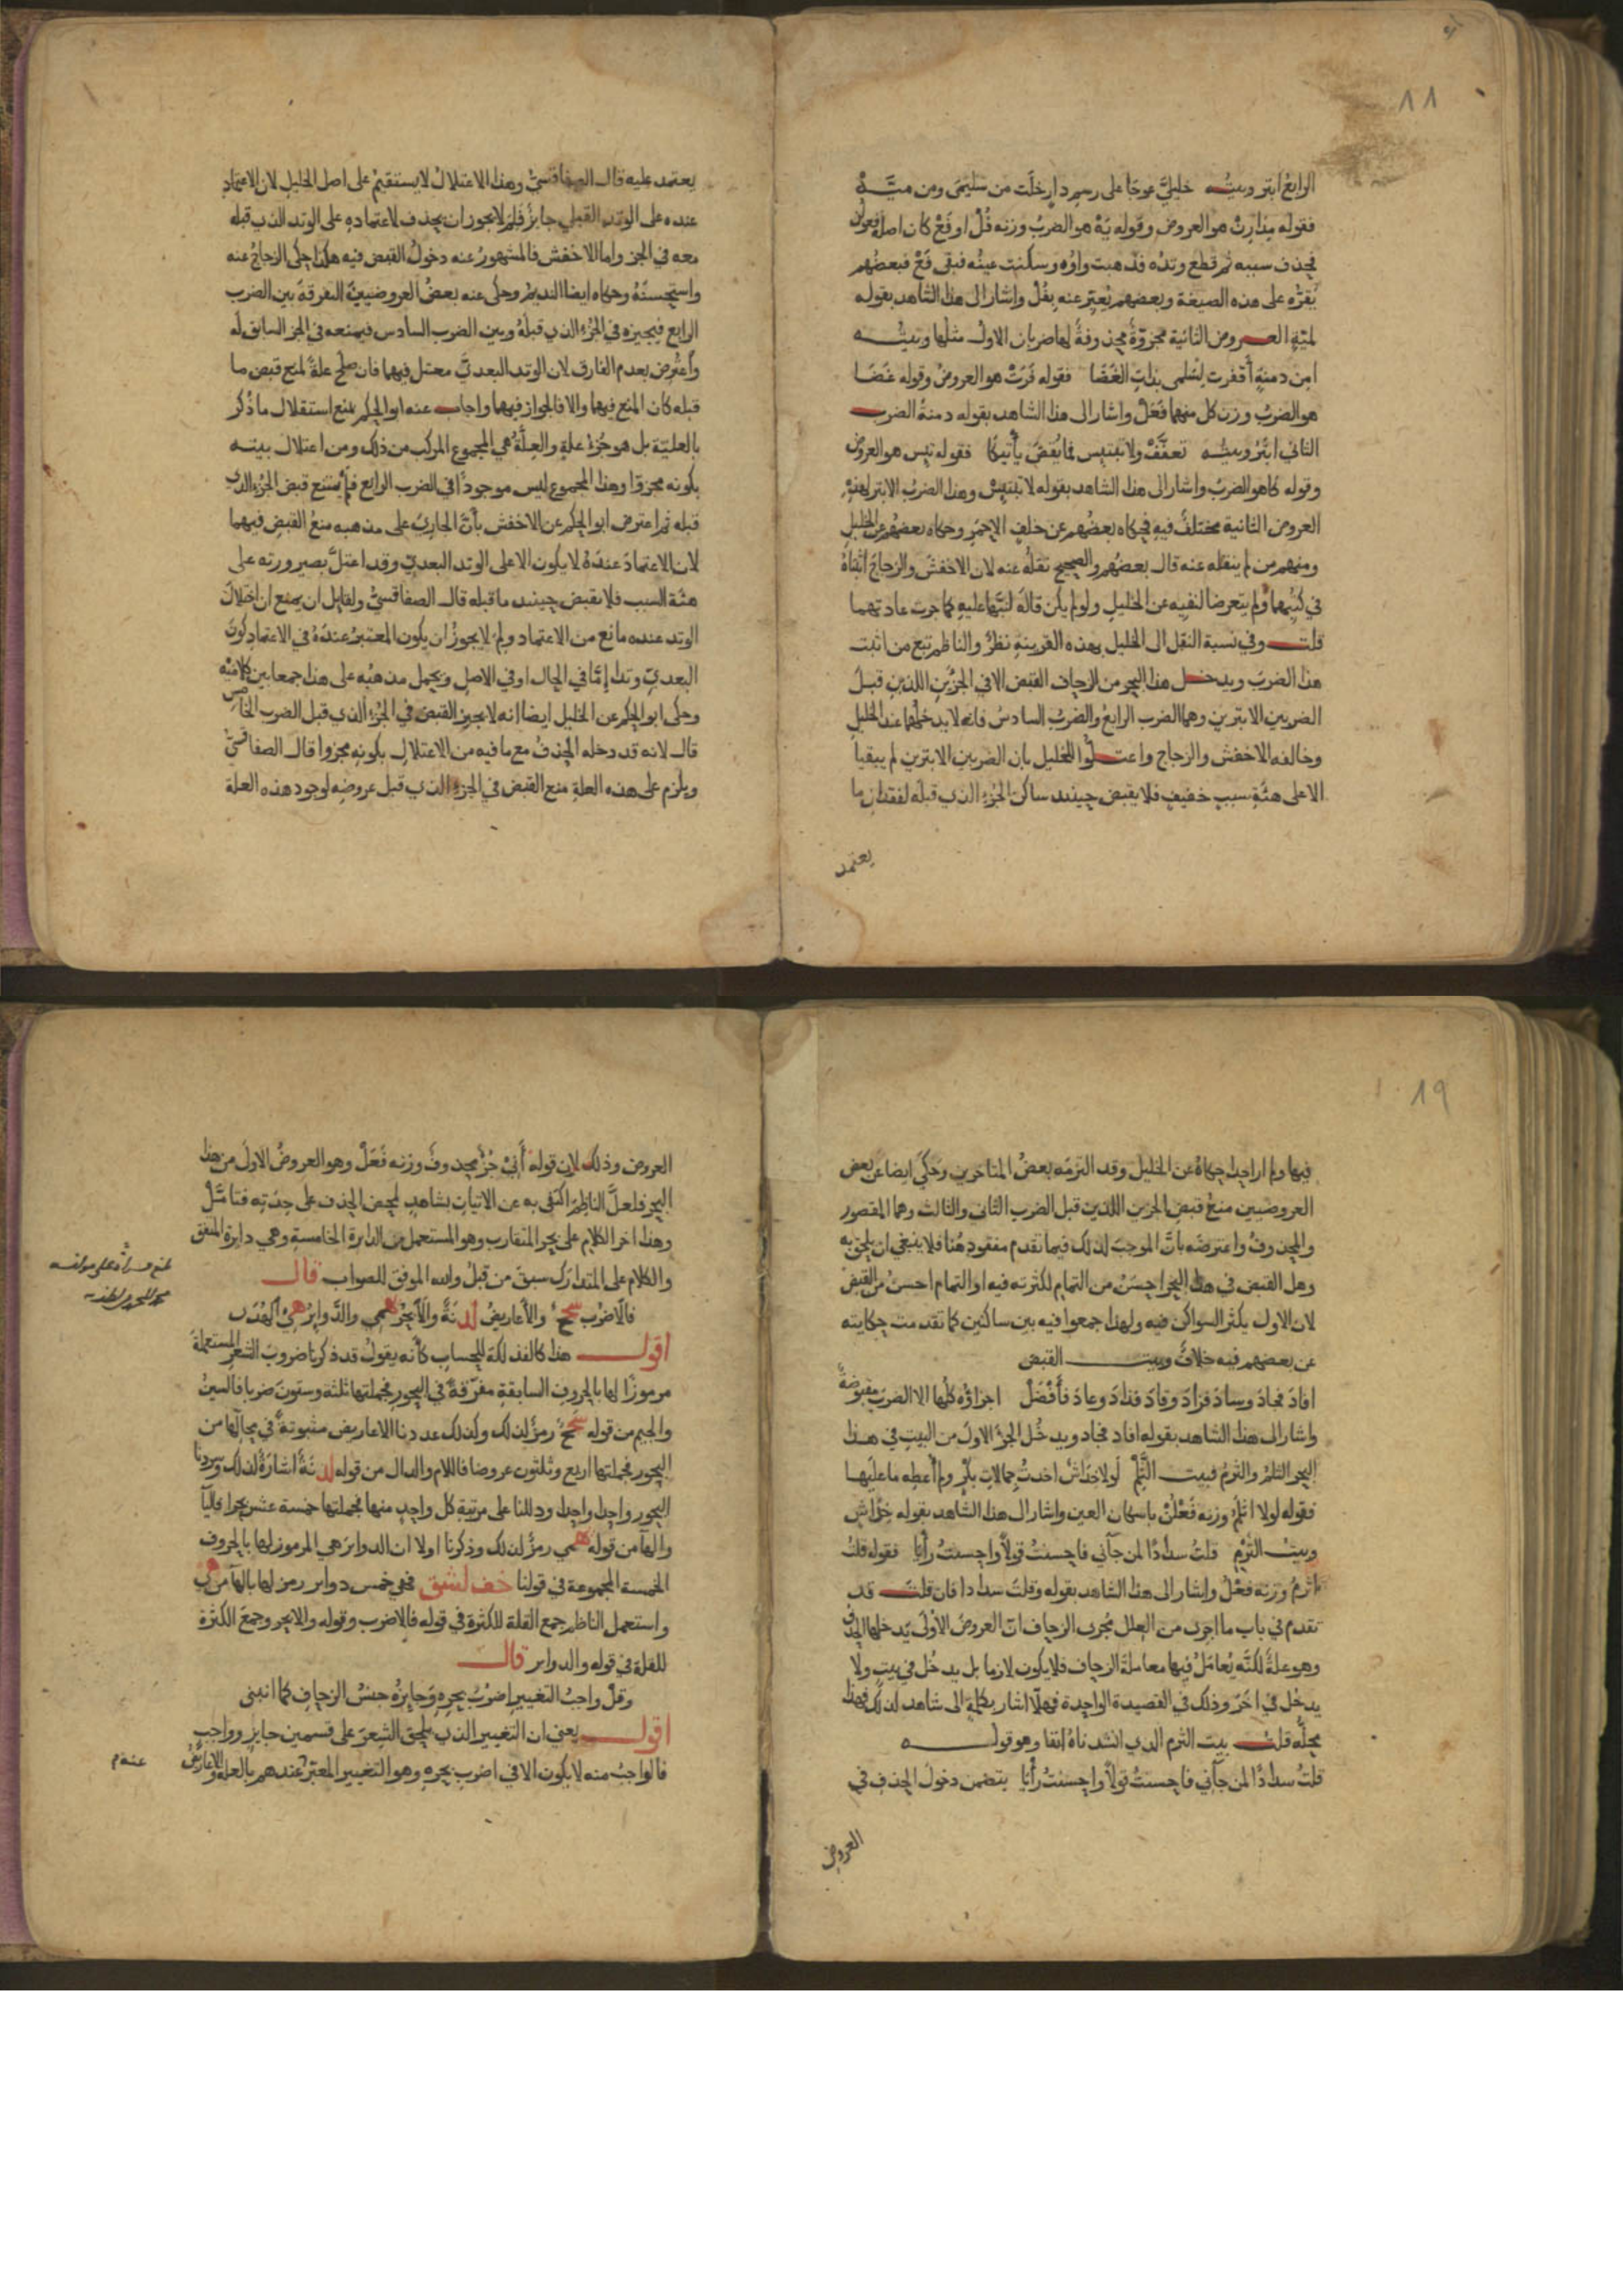 ١٨
الرابع ابتر وبيته خليليَّ عوجا على رسم دار خلت من سليمى ومن ميَّه
فقوله مِدارِنْ هو العروض وقوله يَهْ هو الضربُ وزنه فُلْ او فَعْ كان اصله فعولن
فحذف سببه ثم قطع وتده فذهبت واوُه وسكنت عينُه فبقى فَعْ فبعضهم
يُقرّه على هذه الصيغة وبعضهم يُعبّر عنه بِفُلْ واشار الى هذا الشاهد بقوله
لميّةٍ العروض الثانية مجزوّةٌ محذوفةٌ لها ضربان الاولُ مثلها وبيتُه
امن دمنةٍ أقفرت لسلمى بذاتِ الغَضَا فقوله فَرَتْ هو العروضُ وقوله غَضَا
هو الضربُ وزن كل منهما فَعَلْ واشار الى هذا الشاهد بقوله دمنةٌ الضرب
الثاني ابتَرُ وبيتُه تعفَّفْ ولا تبتئِس فما يُقضَ يأتيكا فقوله تيِس هو العروض
وقوله كا هو الضربُ واشار الى هذا الشاهد بقوله لا تبتئِسْ وهذا الضربُ الابتر لهذه
العروض الثانية مختلفٌ فيه فحكاه بعضُهم عن خلفٍ الاحمرِ وحكاه بعضهم عن الخليل
ومنهم من لم ينقله عنه قال بعضُهم والصحيح نقلُه عنه لان الاخفشَ والزجاجَ اثبتاهُ
في كتبهما ولم يتعرضا لنفيه عن الخليلِ ولو لم يكن قالَه لنبّها عليهِ كما جرت عادتهما
قلت وفي نسبة النقل الى الخليل بهذه القرينةِ نظرٌ والناظم تبع من اثبت
هذا الضربَ ويدخل هذا البحر من الزحاف القبض الا في الجزئين اللذين قبل
الضربين الابترين وهما الضرب الرابعُ والضربُ السادسُ فانه لا يدخلهما عند الخليلِ
وخالفه الاخفش والزجاج واعتلّوا للخليل بان الضربين الابترين لم يبقيا
الا على هيئةِ سببٍ خفيفٍ فلا يقبض حينئذ ساكن الجزءِ الذي قبله لفقدان ما
يعتمد
يعتمد عليه قال الصفاقسيُّ وهذا الاعتلالُ لا يستقيمُ على اصل الخليل لان الاعتماد
عنده على الوتد القبلي جايزٌ فلِمَ لا يجوز ان يحذف لاعتماده على الوتد الذي قبله
معه في الجزءِ واما الاخفش فالمشهورُ عنه دخولُ القبض فيه هكذا حكى الزجاجُ عنه
واستحسنَهُ وحكاه ايضا النديمُ وحكى عنه بعضُ العروضيينَ التفرقةَ بين الضرب
الرابع فيجيزه في الجُزءِ الذي قبلهُ وبين الضرب السادس فيمنعه في الجزءِ السابق له
واعتُرِض بعدم الفارق لان الوتد البعديَّ معتل فيهما فان صلح علةً لمنع قبض ما
قبله كان المنع فيهما والا فالجواز فيهما واجاب عنه ابو الحكم بمنع استقلال ما ذُكر
بالعليّة بل هو جُزءُ علةٍ والعلَّةُ هي المجموع المركب من ذلك ومن اعتلال بيته
بكونه مجزوّا وهذا المجموع ليس موجوداً في الضرب الرابع فلم يمتنع قبض الجزءِ الذي
قبله ثم اعترض ابو الحكم عن الاخفش بأنَّ الجاريَ على مذهبه منعُ القبضِ فيهما
لان الاعتمادَ عندَهُ لا يكون الا على الوتد البعديّ وقد اعتلَّ بصيرورته على
هيئة السبب فلا يقبض حينئذ ما قبله قال الصفاقسيُّ ولقايل ان يمنع ان اختلالَ
الوتد عنده مانع من الاعتماد ولِمَ لا يجوزُ ان يكون المعتبرُ عندَهُ في الاعتمادِ كونَ
البعديّ وتدا إمّا في الحال او في الاصلِ ويحمل مذهبُه على هذا جمعا بين كلاميْه
وحكى ابو الحكم عن الخليل ايضا انه لا يجيز القبضَ في الجُزءِ الذي قبل الضرب الخامس
قال لانه قد دخله الحذفُ مع ما فيه من الاعتلالِ بكونه مجزوا قال الصفاقسيُّ
ويلزم على هذه العلةِ منع القبض في الجزءِ الذي قبل عروضِه لوجود هذه العلة
١٩
فيها ولم ار احدا حكاهُ عن الخليل وقد التزمَه بعضُ المتاخرين وحَكَى ايضا عن بعض
العروضيين منعُ قبضِ الجزءين اللذين قبل الضرب الثانى والثالث وهما المقصور
والمحذوفُ واعترضه بانَّ الموجبَ لذلك فيما تقدم مفقود هُنا فلا ينبغي ان يلحق به
وهل القبض في هذا البحرِ احسَنُ من التمام لكثرته فيه او التمام احسنُ من القبض
لان الاول يكثر السواكن فيه ولهذا جمعوا فيه بين ساكنين كما تقدمت حكايته
عن بعضهم فيه خلافٌ وبيت القبض
افادَ فجادَ وسادَ فزادَ وقادَ فذادَ وعادَ فأَفْضَلْ اجزاؤه كلُّها الا الضربَ مقبوضةٌ
واشار الى هذا الشاهد بقوله افاد فجاد ويدخُل الجزءَ الاولَ من البيتِ في هذا
البحر الثلمُ والثرمُ فبيت الثَّلْمِ لولا خِدَاشٌ اخذتُ جمالاتِ بكْرٍ ولم أُعطِه ما عليها
فقوله لولا اثلمُ وزنه فَعْلُنْ باسكان العين واشار الى هذا الشاهد بقوله خِدَاش
وبيت الثَرْمِ قلتُ سدادًا لمن جآني فاحسنتُ قولاً واحسنتُ رأيا فقوله قلتُ
اثرمُ وزنه فعْلُ واشار الى هذا الشاهد بقوله وقلتَ سدادا فان قلت قد
تقدم في باب ما اجرى من العلل مُجرى الزحاف انّ العروضَ الأُولَى يَدخلها الحذف
وهو علةٌ لكنَّه يُعامَلُ فيها معاملةَ الزحاف فلا يكون لازما بل يدخُل في بيتٍ ولا
يدخُل في اخَرَ وذلك في القصيدة الواحدة فهلّا اشار بكلمةٍ الى شاهد لذلك فهذا
محلُّه قلتُ بيت الثرم الذي انشدناهُ انفا وهو قوله
قلتُ سدادًا لمن جآني فاحسنتُ قولاً واحسنتُ رأيا يتضمن دخولَ الحذفِ في
العروض
العروض وذلك لان قوله أَنِيْ جُزءٌ محذوفٌ وزنه فَعَلْ وهو العروضُ الاولَى من هذا
البحر فلعلَّ الناظِمَ اكتفى به عن الاتيان بشاهدٍ لمحض الحذف على حِدَتِه فتامَّلْ
وهذا اخر الكلام على بحر المتقارب وهو المستعمل من الدايرة الخامسةِ وهي دايرة المتفق
والكلام على المتدارَك سبقَ من قبلُ والله الموفق للصواب قال
فالاضرُب سَجٌ والأعاريضُ لدْنَةٌ والابحُر همي والدَّوايرُ هيْ الهُدَى
اقول هذا كالفذلكة للحساب كأنه يقولُ قد ذكرنا ضروبَ الشعر المستعملة
مرموزًا لها بالحروفِ السابقةِ مفرّقةً في البحورِ فجملتها ثلثة وستونَ ضربا فالسينُ
والجيم من قوله سَجٌ رمزٌ لذلك وكذلك عددنا الاعاريض مثبوتةً في محالّها من
البحور فجملتها اربع وثلثون عروضا فاللام والدال من قوله لدنَةٌ اشارةٌ لذلك وسردنا
البحور واحدا واحدا ودللنا على مرتبة كل واحدٍ منها فجملتها خمسة عشر بحرا فاليآ
والهآ من قولِه همي رمزٌ لذلك وذكرنا اولا ان الدوايرَ هي المرموز لها بالحروف
الخمسة المجموعة في قولنا خف لشق فهي خمس دواير رمز لها بالهآ من هي
واستعمل الناظم جمع القلة للكثرة في قوله فالاضرب وقوله والابحر وجمعَ الكثرة
للقلة في قوله والدواير قال
وقلْ واجبُ التغيير اضرُبُ بحرِه وَجايزُه جنسُ الزحافِ كما انبنى
اقول يعني ان التغيير الذي يلحق الشِعرَ على قسمين جايزٍ وواجب
فالواجبُ منه لا يكون الا في اضرب بحره وهو التغيير المعبّر عندهم بالعلة والاعاريض